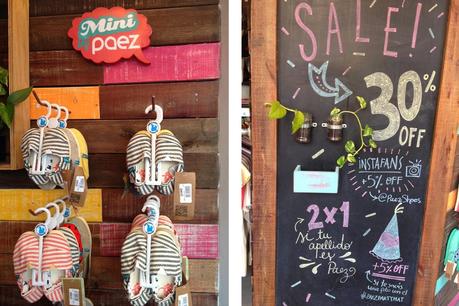 Mini
paez
SALE!
30%
OFF
INSTAFANS
+5% OFF
@PaezShoes
2x1
¡si tu
apellido
es
Paez
+5% OFF